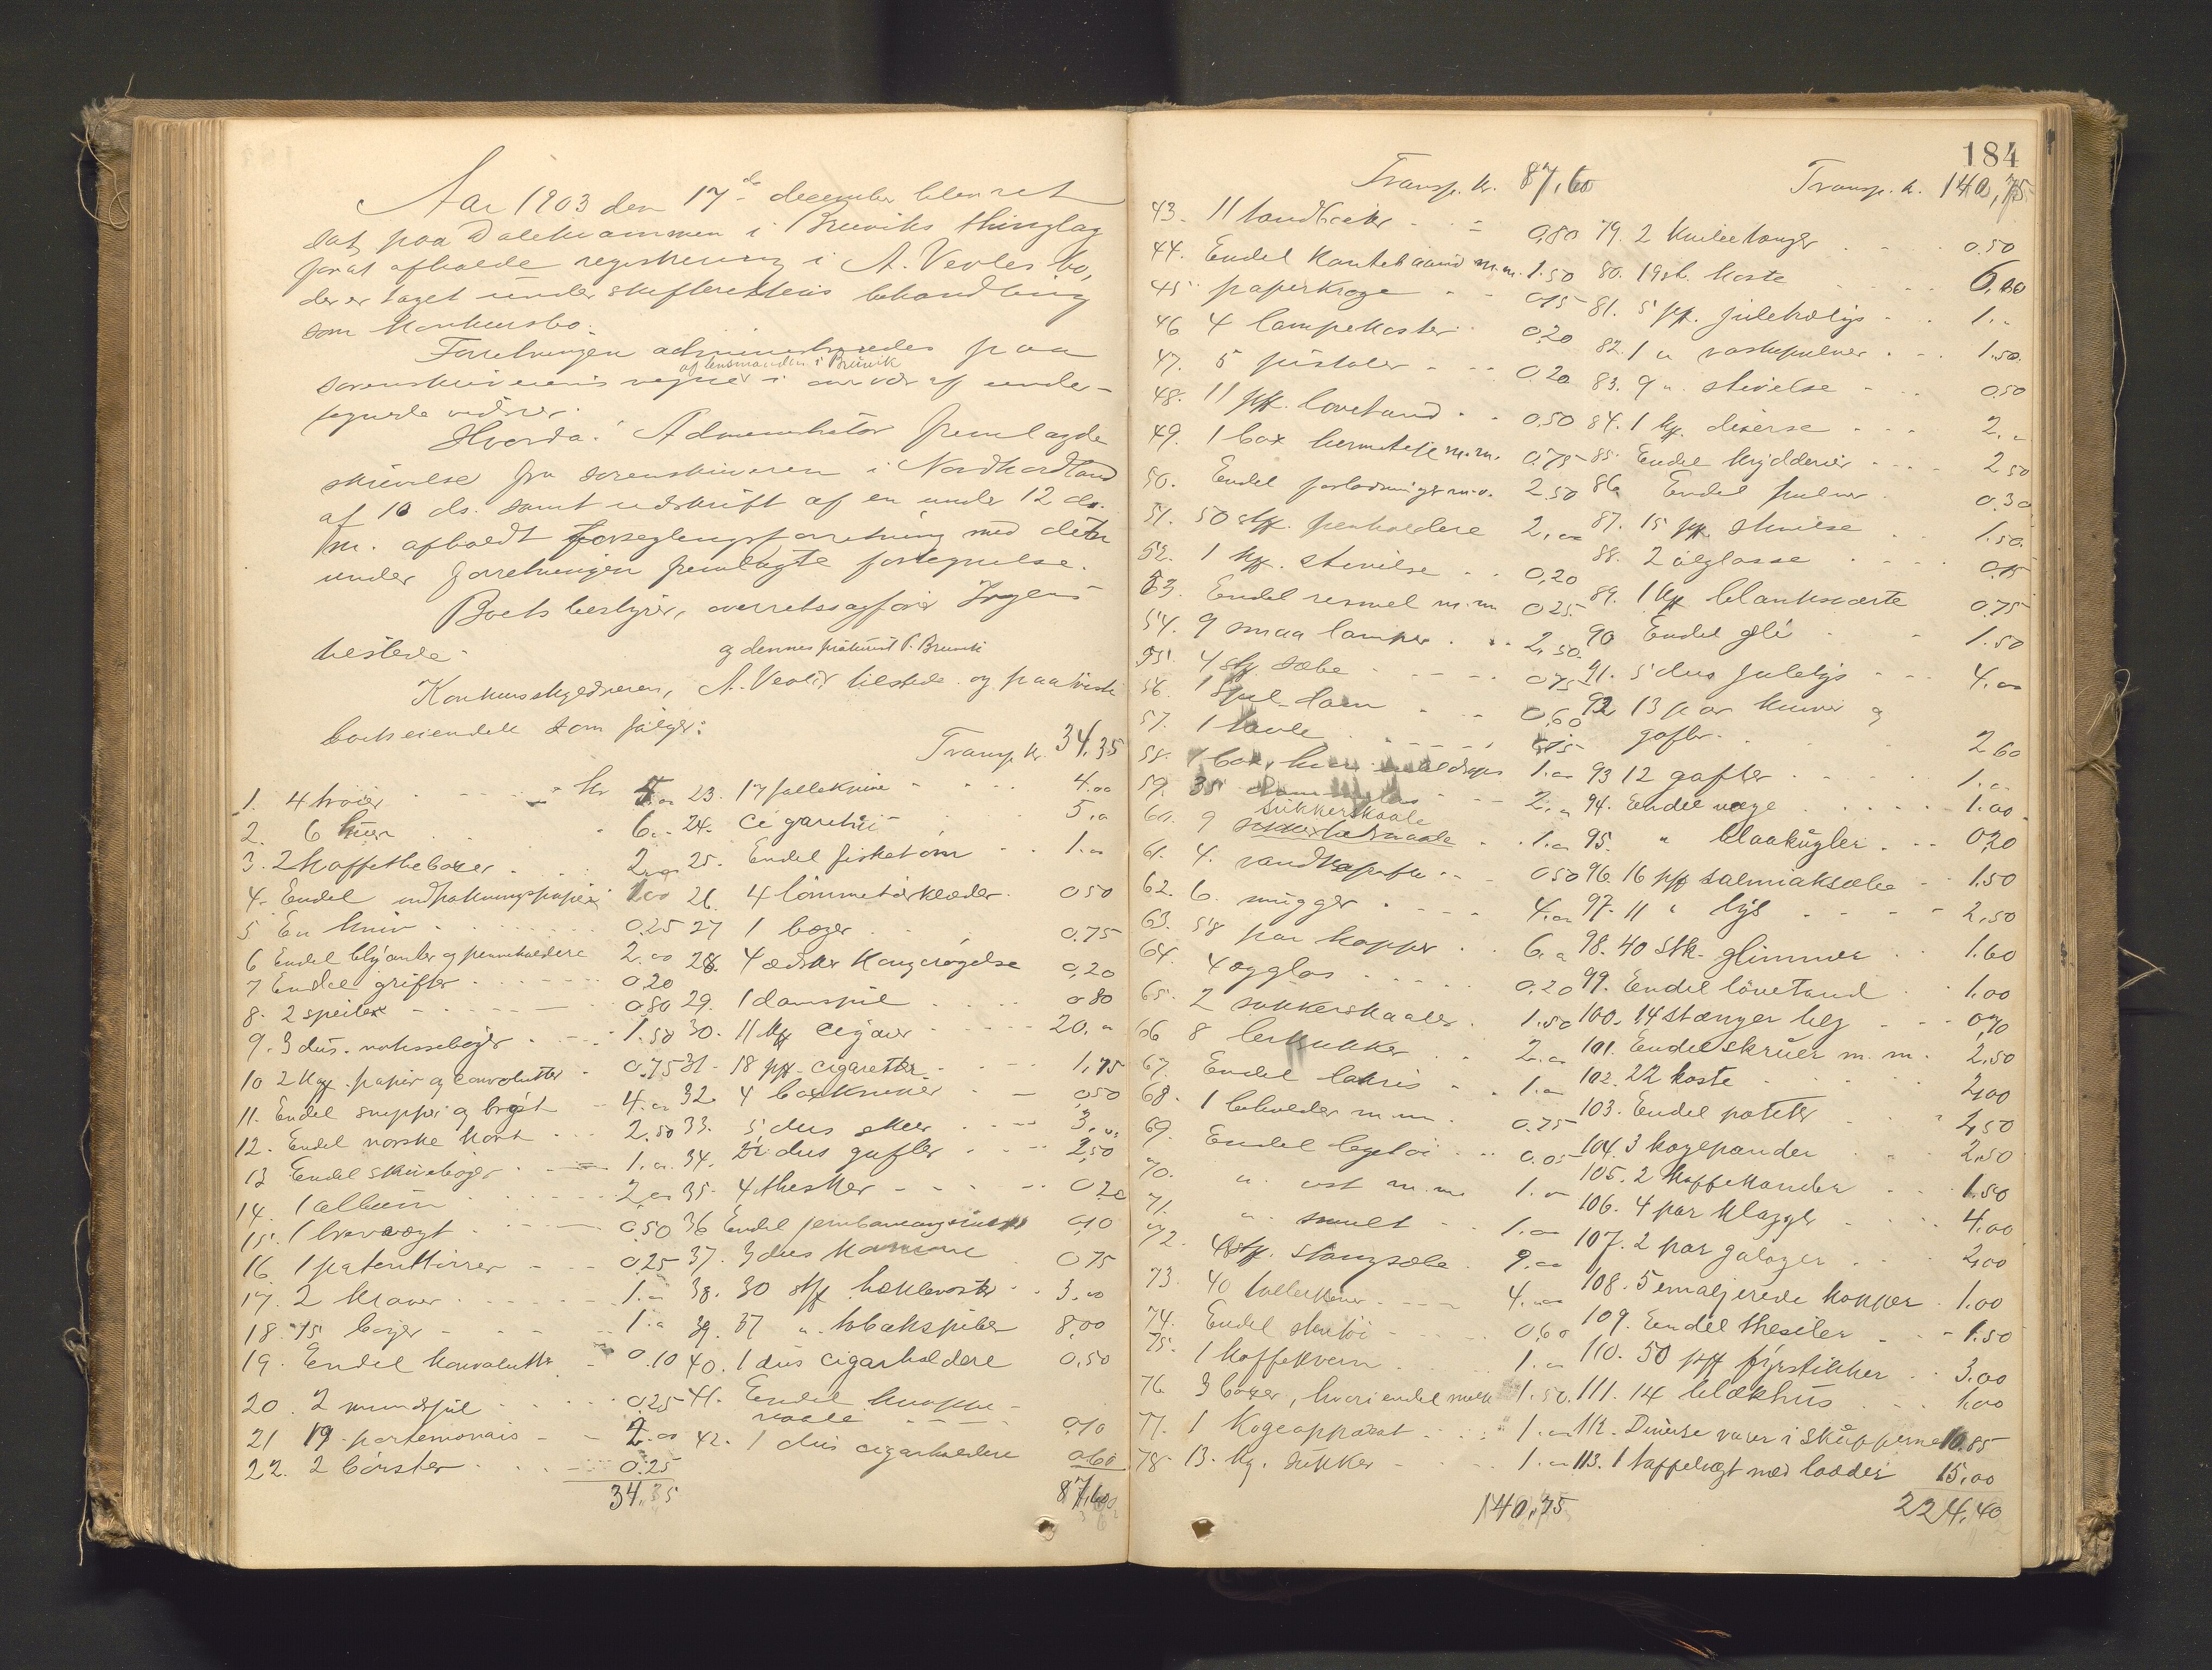 Aar 1903 den 17de december blev ret
sat paa Dalekvammen i Bruviks thinglag
forat afholde registrering i A. Veoles bo,
der er taget under skifterettens behandling
som konkursbo.
Forretningen administreredes paa
af lensmanden i Bruvik
sorenskriverens vegne i overvær af under-
tegnede vidner.
Hvorda: Administrator fremlagde
skrivelse fra sorenskriveren i Nordhordland
af 10 ds. samt udskrift af en under 12 ds.
m. afholdt forseglingsforretning med den
under forretningen fremlagte fortegnelse.
Boets bestyrer, overretssagfører Irgens
og dennes P. Bruvik
tilstede.
Konkursskyldneren, A. Veole, tilstede og paaviste
boets eiendele som følger:
1. 4 trøier kr 4.00
2. 6 huer 6.-
3. 2 kaffethebøxer 2.00
4. Endel indpakningspapir 1.00
5 En kniv 0.25
6 Endel blyanter og pennholdere 2.00
7 Endel grifler 0.20
8. 2 speiler 0.80
9. 3 dus. notissebøger 1.50
10 2 kas. papir og convolutter 0.75
11. Endel snipper og bryst 4.00
12. Endel norske kort 2.50
13 Endel skrivebøger 1.00
14. 1 album 2.00
15. 1 brevvægt 0.50
16. 1 patentkirver 0.25
17. 2 kraver 1.-
18. 15 bøger 1.-
19. Endel konvolutter 0.10
20. 2 mundspil 0.25
21 19 portemonais 2.00
22. 2 børster 0.25
34.35
Transp. kr. 34,35
23. 17 følleknive 4.00
24. Cigaretui 5.-
25. Endel fisketøm 1.00
26. 4 lommetørklæder 0.50
27 1 bøger 0.75
28. 4 æsker kongerøgelse 0,20
29. 1 damspil 0.80
30. 11 kas. cigarer 20.-
31. 18 pk. cigaretter 1,75
32. 4 boxkniver 0,50
33. 5 dus skeer 3.00
34. dus gafler 2,50
35. 4 theskeer 0.20
36 Endel 0,10
37. 3 dus kamme 0.75
38. 30 stk. 3.00
39. 37 " tobakspiber 8,00
40. 1 dus cigarholdere 0.50
41. Endel knappe-
naale 0,10
42. 1 dus cigarholdere 0.60
87,60
184
Transp. kr. 87,60
43. 11 tandbørster 0,80
44. Endel kantebaand m.m. 1.50
45 paperkroge 0.15
46 4 lampekoster 0.20
47. 5 pistoler 0.20
48. 11 pk. løvetand 0.50
49. 1 box hermetik m.m. 0.75
50. Endel forladninger m.v. 2.50
51. 50 stk. penholdere 2.00
52. 1 kas. stivelse 0,20
53. Endel m.m 0.25
54. 9 smaa lamper 2.50
55. 4 stk sæbe 0.75
56. 1 0,60
57. 1 tavle 0.15
58. 1 box, 1.00
59. 35 2.00
sukkerskaale
60. 9 1.00
61. 4. vandkarafler 0.50
62. 6. mugger 4.00
63. 58 par kopper 6.-
64. 4 ægglas 0.20
65. 2 sukkerskaaler 1.50
66 8 lerkrukker 2.00
67. Endel lakris 1.-
68. 1 beholder m.m. 0.75
69. Endel legetøi 0.05
70. " ost m.m. 1.-
71. " smult 1.00
72. stk. stangsæbe 9.00
73. 40 tallerkener 4.00
74. Endel stentøi 0,60
75. 1 kaffekvern 1.-
76. 3 boxer, hvori endel melk 1.50
77. 1 kogeapparat 1.00
78. 13. kg. sukker 1.00
140,75
Transp. kr. 140,75
79. 2 knibetænger 0.50
80. 19 st. koste 6,00
81. 5 pk. juletrælys 1.-
82. 1 " vaskepulver 1.50
83. 9 " stivelse 0.50
84. 1 kas. diverse 2.-
85. Endel krydderier 2.50
86. Endel pulver 0.30
87. 15 pk. stivelse 1.50
88. 2 ølglasse 0.15
89. 1 kas blanksværte 0.75
90 Endel 1.50
91. 5 dus julelys 4.00
92 13 par kniver og
gafler 2.60
93 12 gafler 1.-
94. Endel væge 1.00
95. " blaakugler 0,20
96. 16 pk salmiaksæbe 1.50
97. 11 " lys 2.50
98. 40 stk. glimmer 1.60
99. Endel løvetand 1.00
100. 14 stænger bly 0,70
101. Endel skruer m.m. 2.50
102. 22 koste 2,00
103. Endel potter 2,50
104. 3 kogepander 2.50
105. 2 kaffekander 1.50
106. 4 par klagger 4.00
107. 2 par galoger 2,00
108. 5 emaljerede kopper 1.00
109. Endel thesiler 1.50
110. 50 pk fyrstikker 3.00
111. 14 blækhus 1,00
112. Diverse varer i skapperne 10.85
113. 1 taffelvægt med lodder 15,00
224,40